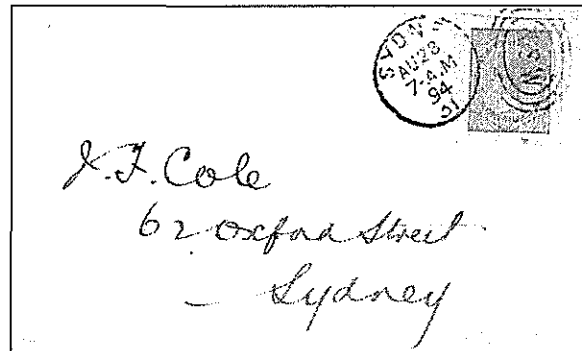 SYDNEY
AU 28
7-A.M
94
31
N.S.
J.F. Cole
62 Oxford Street
Sydney